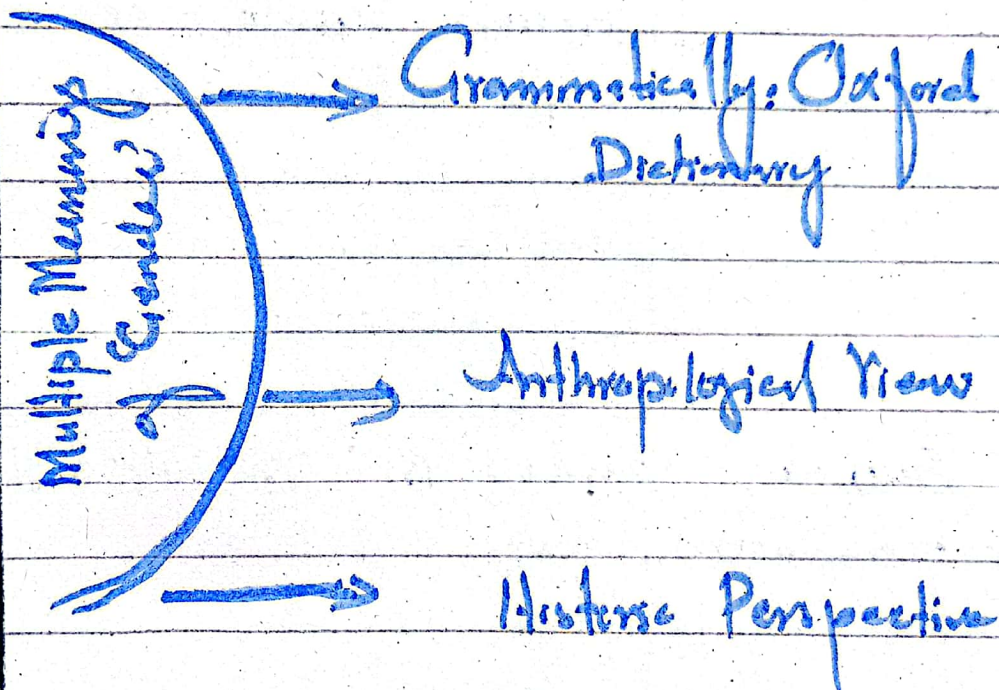 Multiple Meanings
of 'Gender'
Grammatically: Oxford
Dictionary
Anthropological View
Historic Perspective